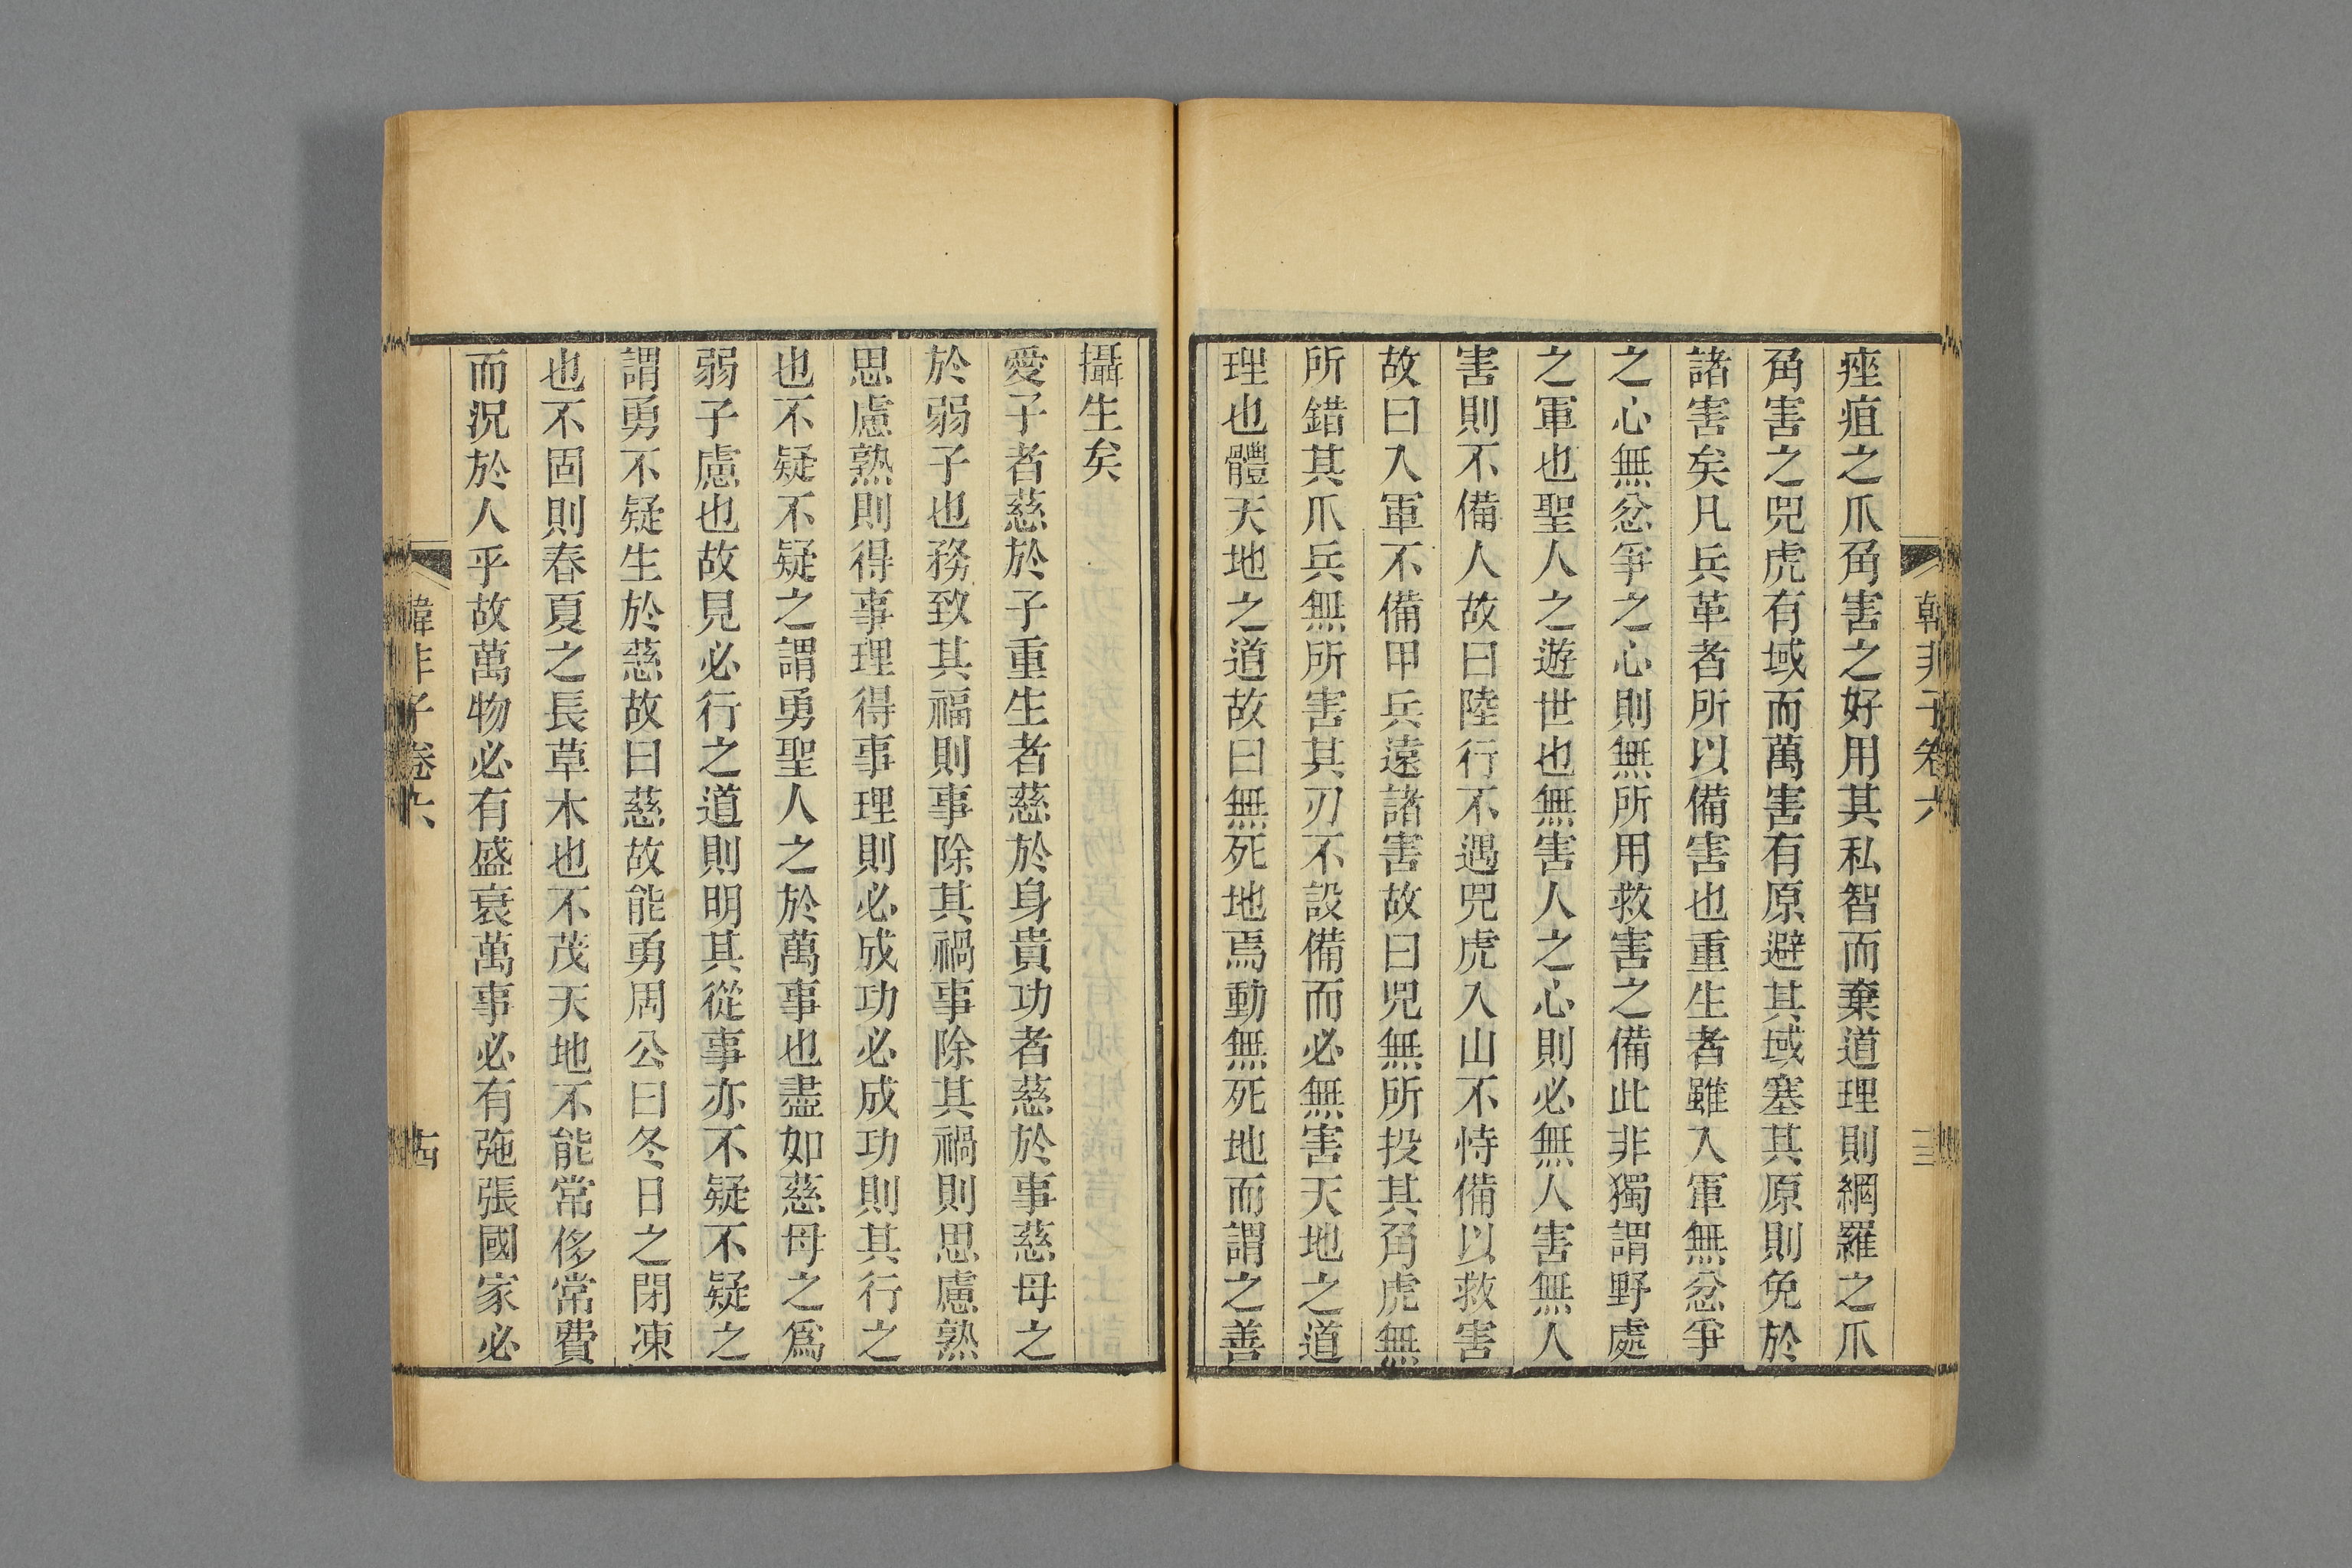 痤疽之爪角害之好用其私智而棄道理則網羅之爪
角害之兕虎有域而萬害有原避其域塞其原則免於
諸害矣凡兵革者所以備害也重生者雖入軍無忿爭
之心無忿爭之心則無所用救害之備此非獨謂野處
之軍也聖人之遊世也無害人之心則必無人害無人
害則不備人故曰陸行不遇兕虎入山不恃備以救害
故曰入軍不備甲兵遠諸害故曰兕無所投其角虎無
所錯其爪兵無所害其刃不設備而必無害天地之道
理也體天地之道故曰無死地焉動無死地而謂之善
韓非子卷六
攝生矣
愛子者慈於子重生者慈於身貴功者慈於事慈母之
於弱子也務致其福則事除其禍事除其禍則思慮熟
思慮熟則得事理得事理則必成功必成功則其行之
也不疑不疑之謂勇聖人之於萬事也盡如慈母之爲
弱子慮也故見必行之道則明其從事亦不疑不疑之
謂勇不疑生於慈故曰慈故能勇周公曰冬日之閉凍
也不固則春夏之長草木也不茂天地不能常侈常費
而況於人乎故萬物必有盛衰萬事必有弛張國家必
韓非子卷六